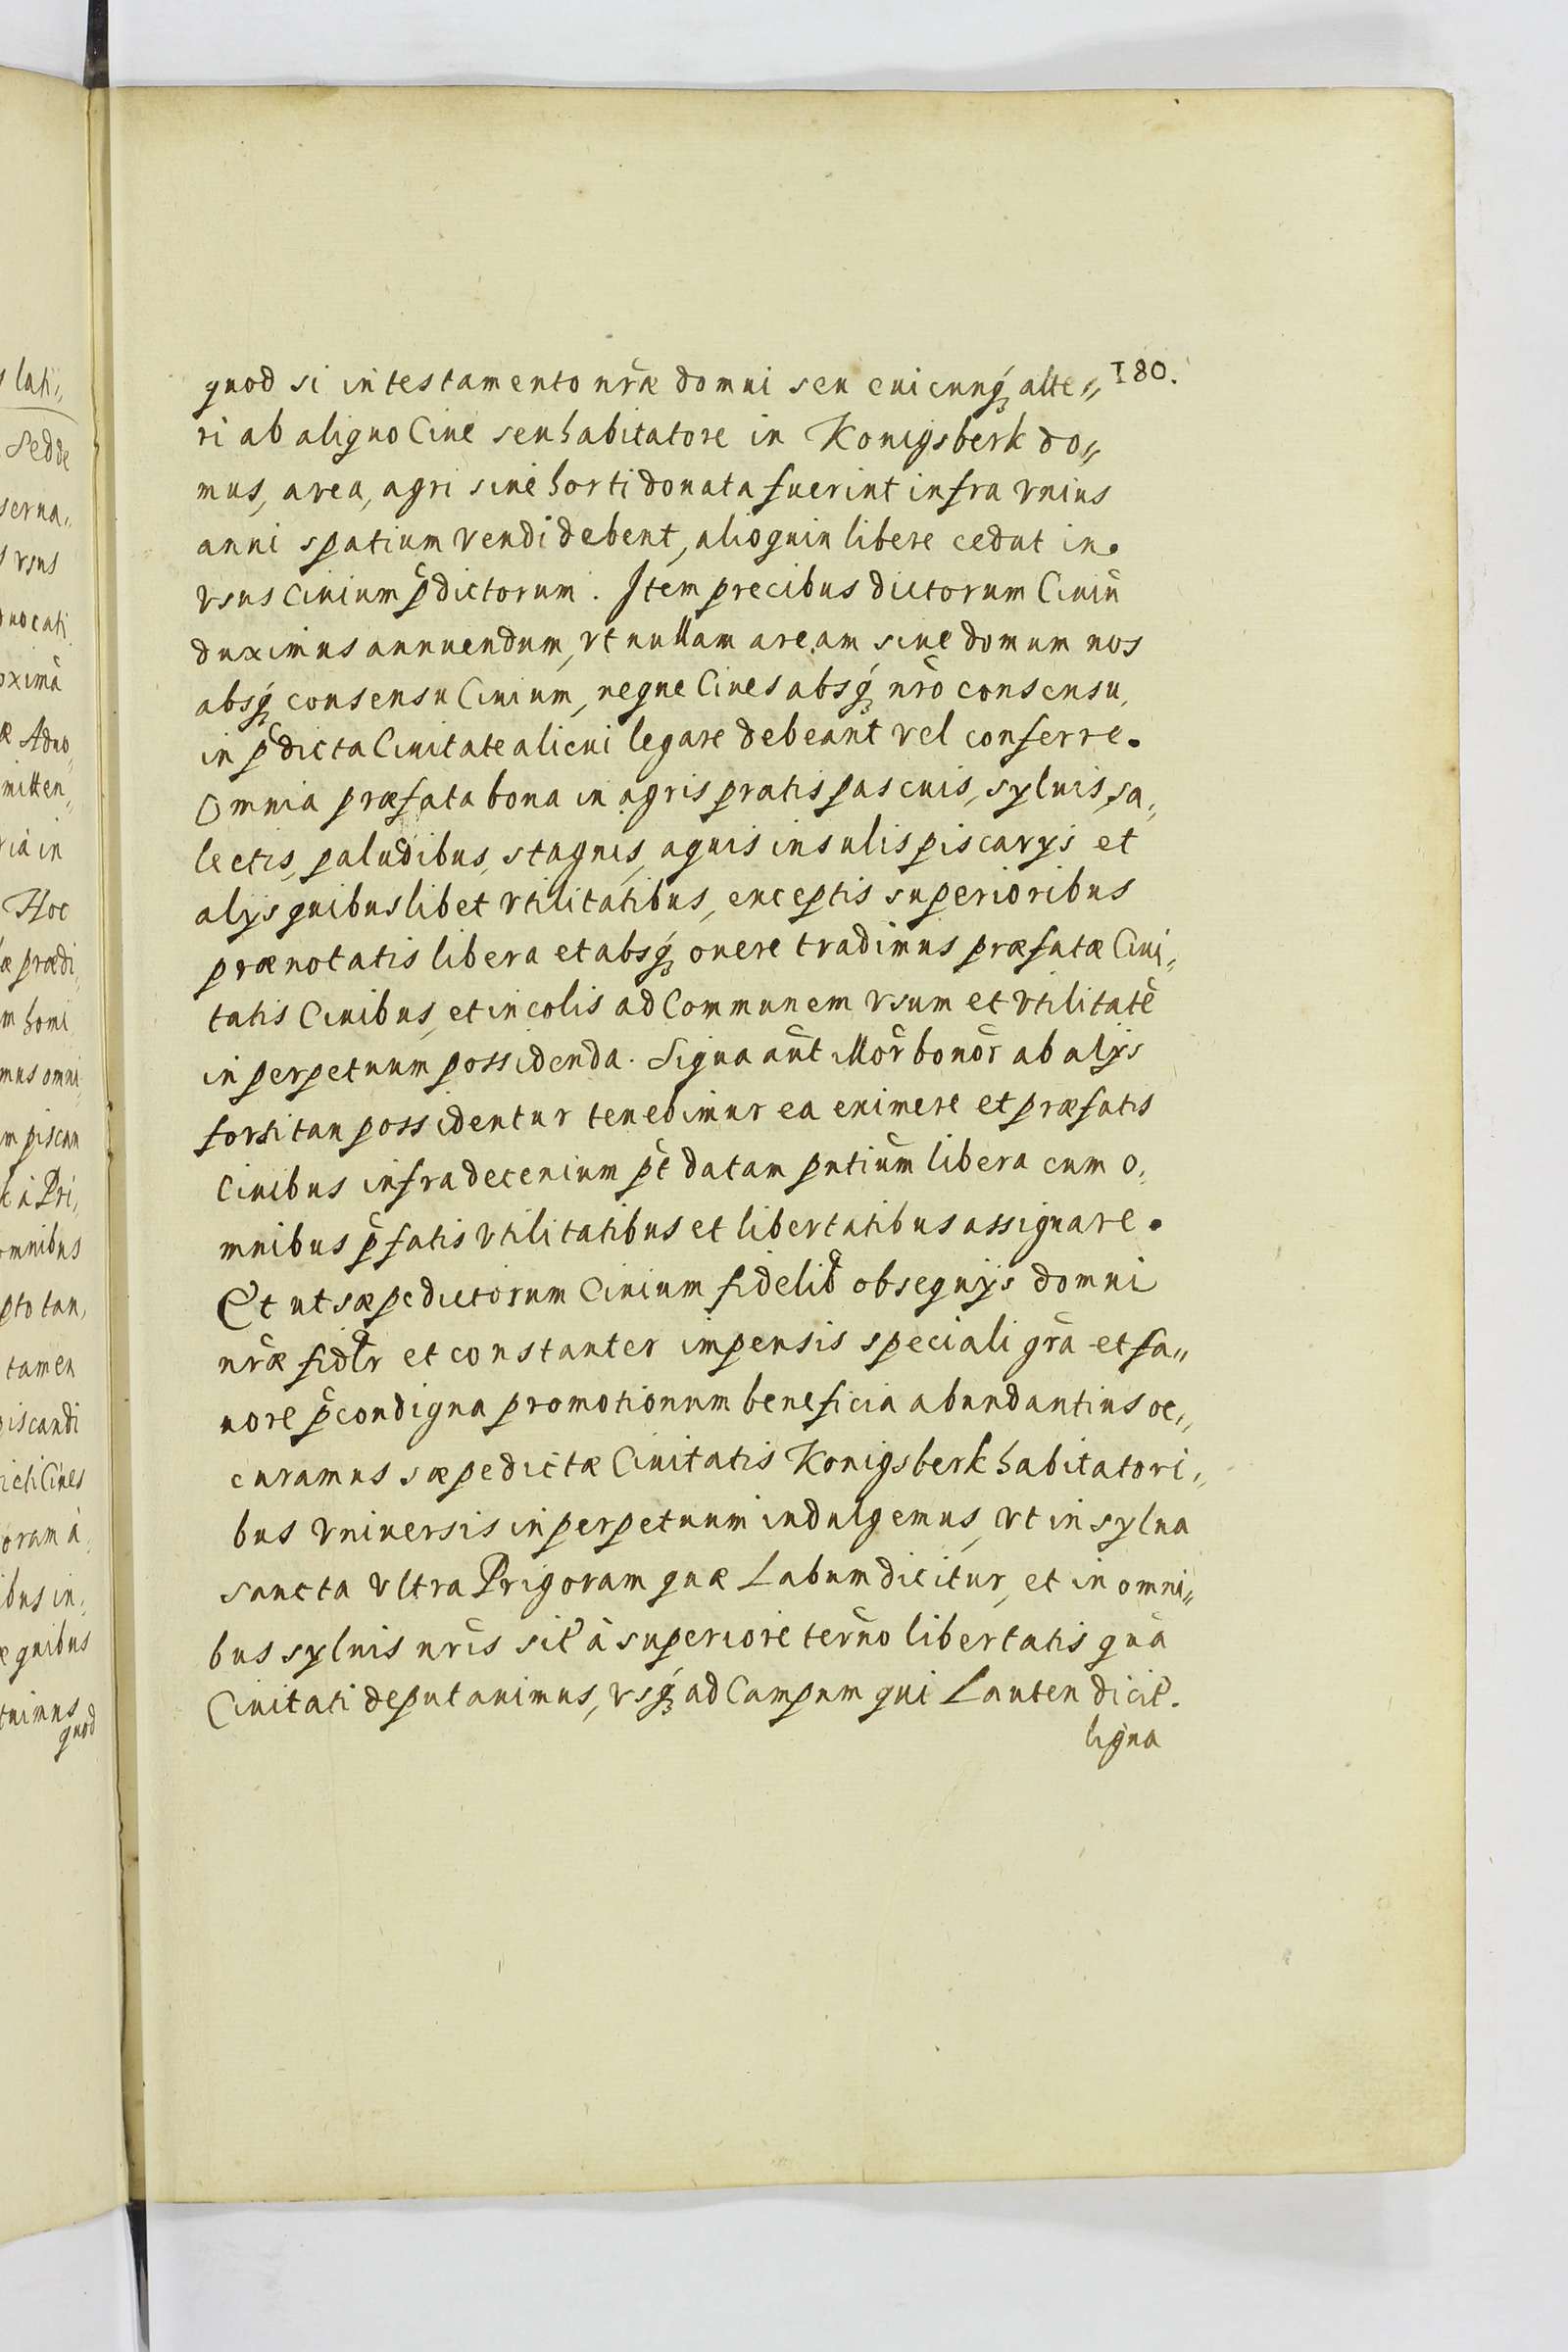 180.
quod si in testamento nr̃æ domui seu cuicunq́ȝ alte〃
ri ab aliquo Ciue seu habitatore in Konigsberk do〃
mus, area, agri siue horti donata fuerint infra vnius
anni spatium vendi debent, alioquin libere cedut in.
vsus Ciuium p̃dictorum. Item precibus dictorum Ciuiũ
duximus annuendum, vt nullam aream siue domum nos
absq́ȝ consensu Ciuium, neque Ciues absq́ȝ nr̃o consensu,
in p̃dicta Ciuitate alicui legare debeant vel conferre.
Omnia præfata bona in agris pratis pascuis, syluis, sa〃
lectis, paludibus, stagnis, aquis insulis piscarijs et
alijs quibuslibet vtilitatibus, exceptis superioribus
prænotatis libera et absq́ȝ onere tradimus præfatæ Ciui〃
tatis Ciuibus, et incolis ad Communem vsum et vtilitatẽ
in perpetuum possidenda. Si qua aũt illor̃ bonor̃ ab alijs
forsitan possidentur tenebimur ea eximere et præfatis
Ciuibus infra decenium p̃t datam pntiũm libera cum o〃
mnibus p̃fatis vtilitatibus et libertatibus assignare.
Et ut sæpedictorum Ciuium fidelib9 obsequijs domui
nr̃æ fidlr et constanter impensis speciali gr̃a et fa〃
uore p̃condigna promotionum beneficia abundantius oc〃
curamus sæpedictæ Ciuitatis Konigsberk habitatori〃
bus vniuersis in perpetuum indulgemus, vt in sylua
sancta vltra Prigoram quæ Labum dicitur, et in omni〃
bus syluis nr̃is sit à superiore ter̃no libertatis quã
Ciuitati deputauimus, vsq́ȝ ad Campum qui Lauten dicit.
ligna